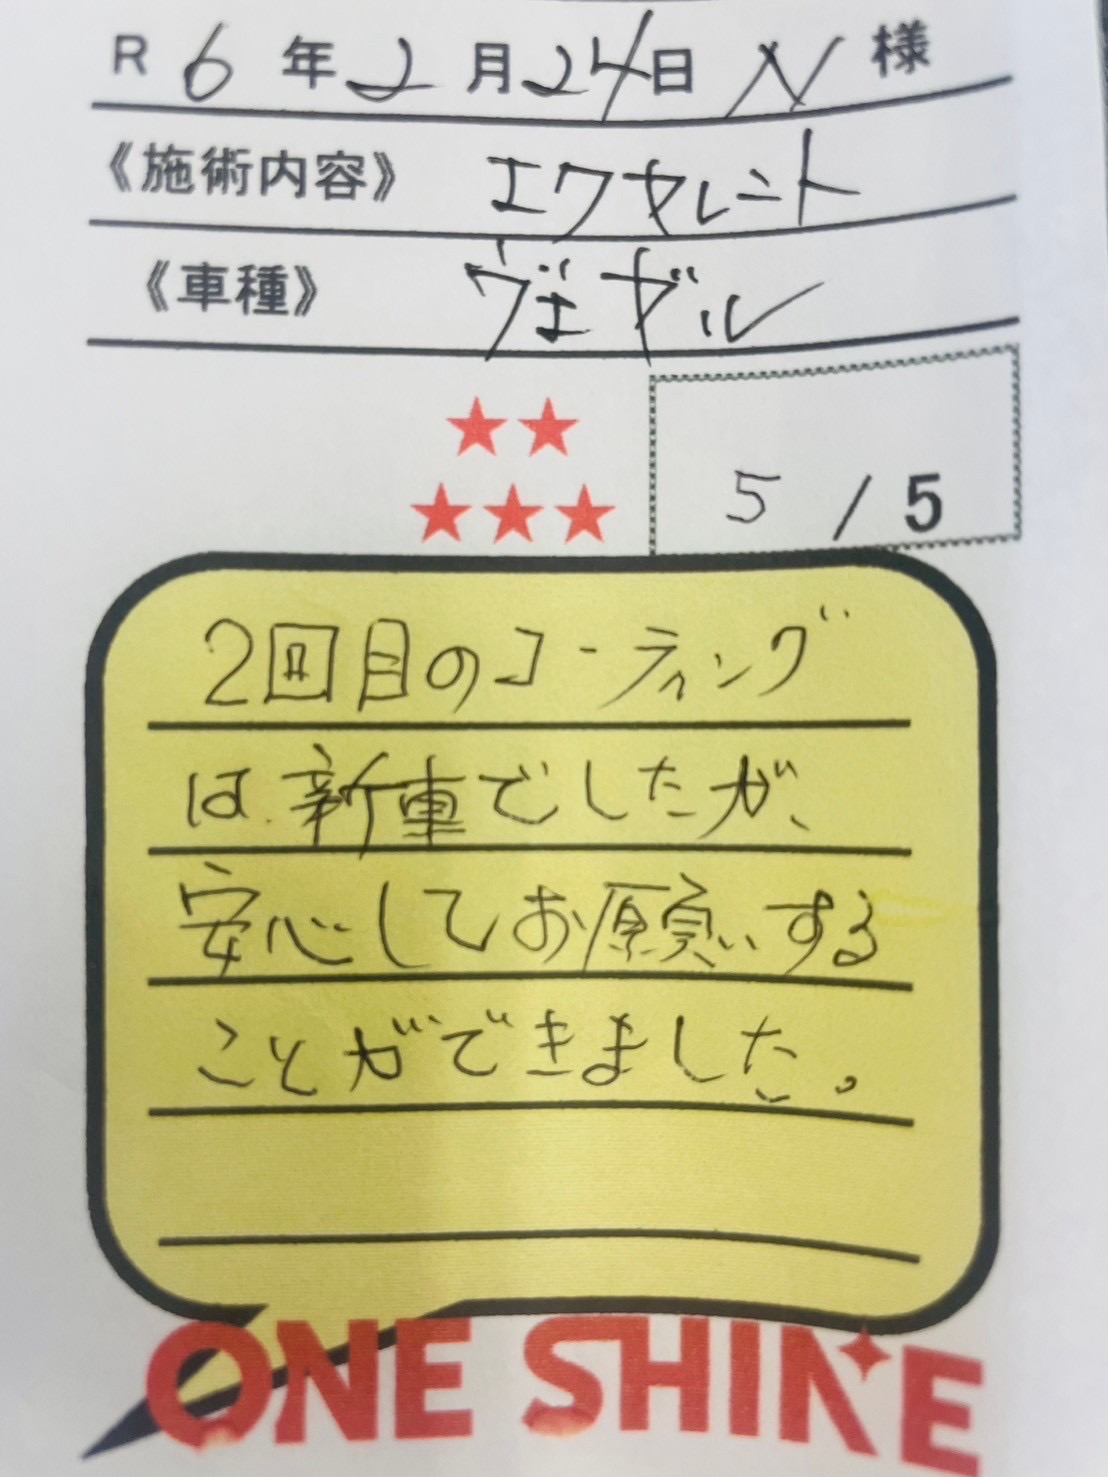 R 6年2月24日 N 様
《施術内容》 エクセレント
《車種》 ヴェゼル
★★
★★★
5 / 5
2回目のコーティング
は新車でしたが、
安心してお願いする
ことができました。
ONE SHINE